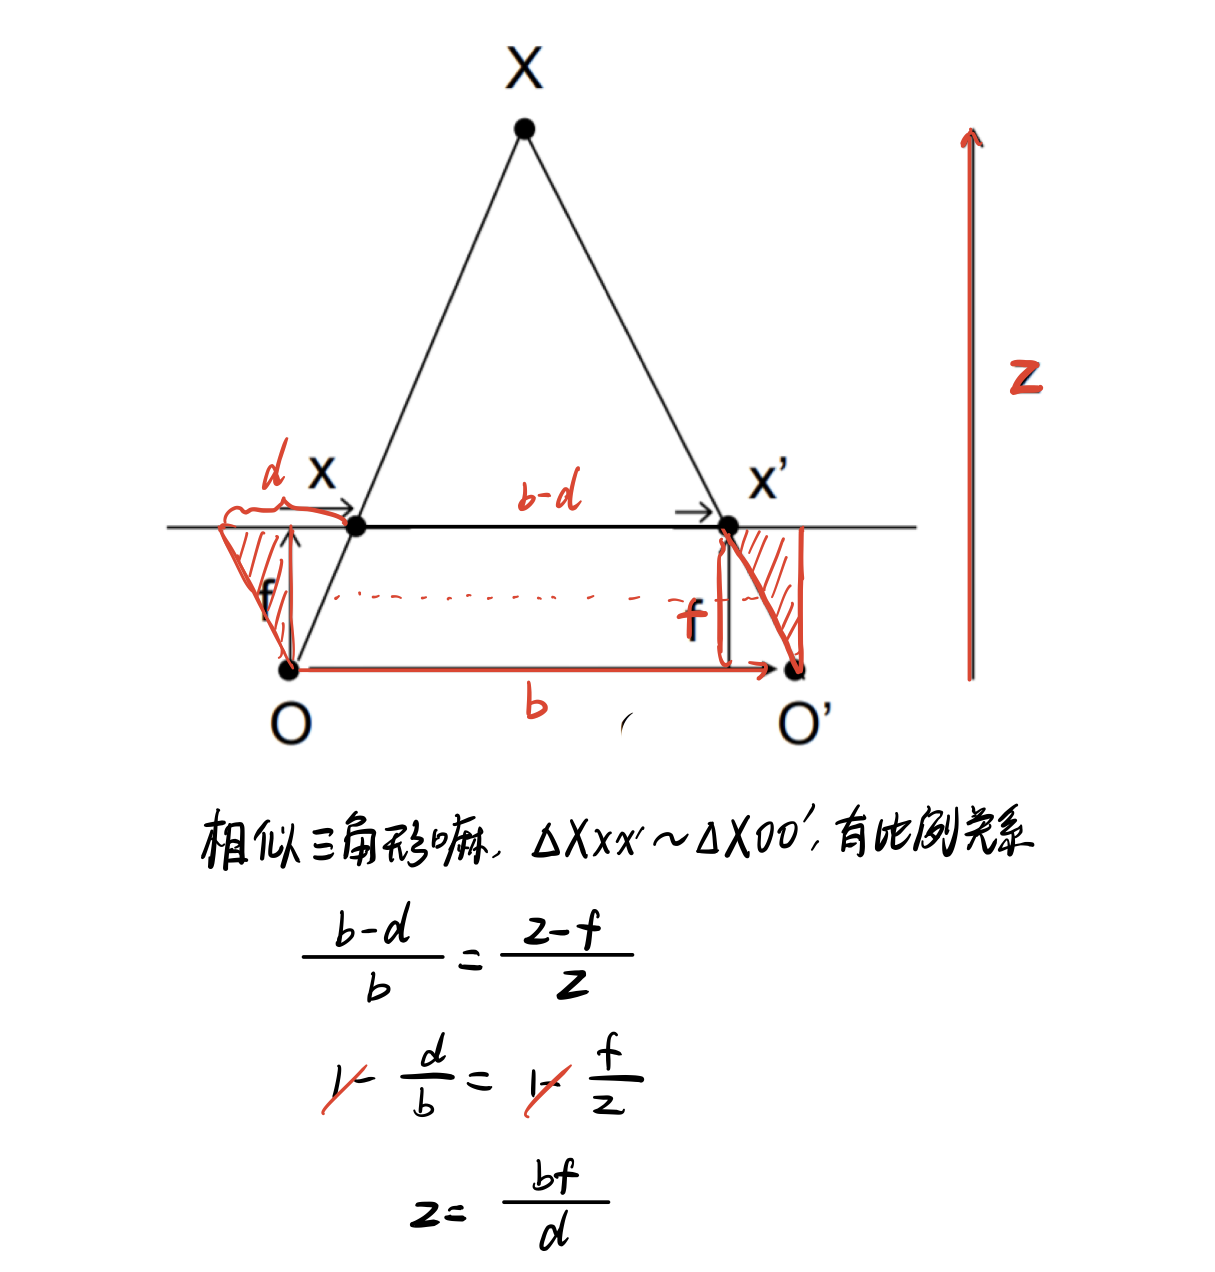 X
z
d x b-d x'
f f
b
O O'
相似三角形嘛, ΔXxx'~ΔXOO', 有比例关系
b-d/b = z-f/z
1-d/b = 1-f/z
z= bf/d